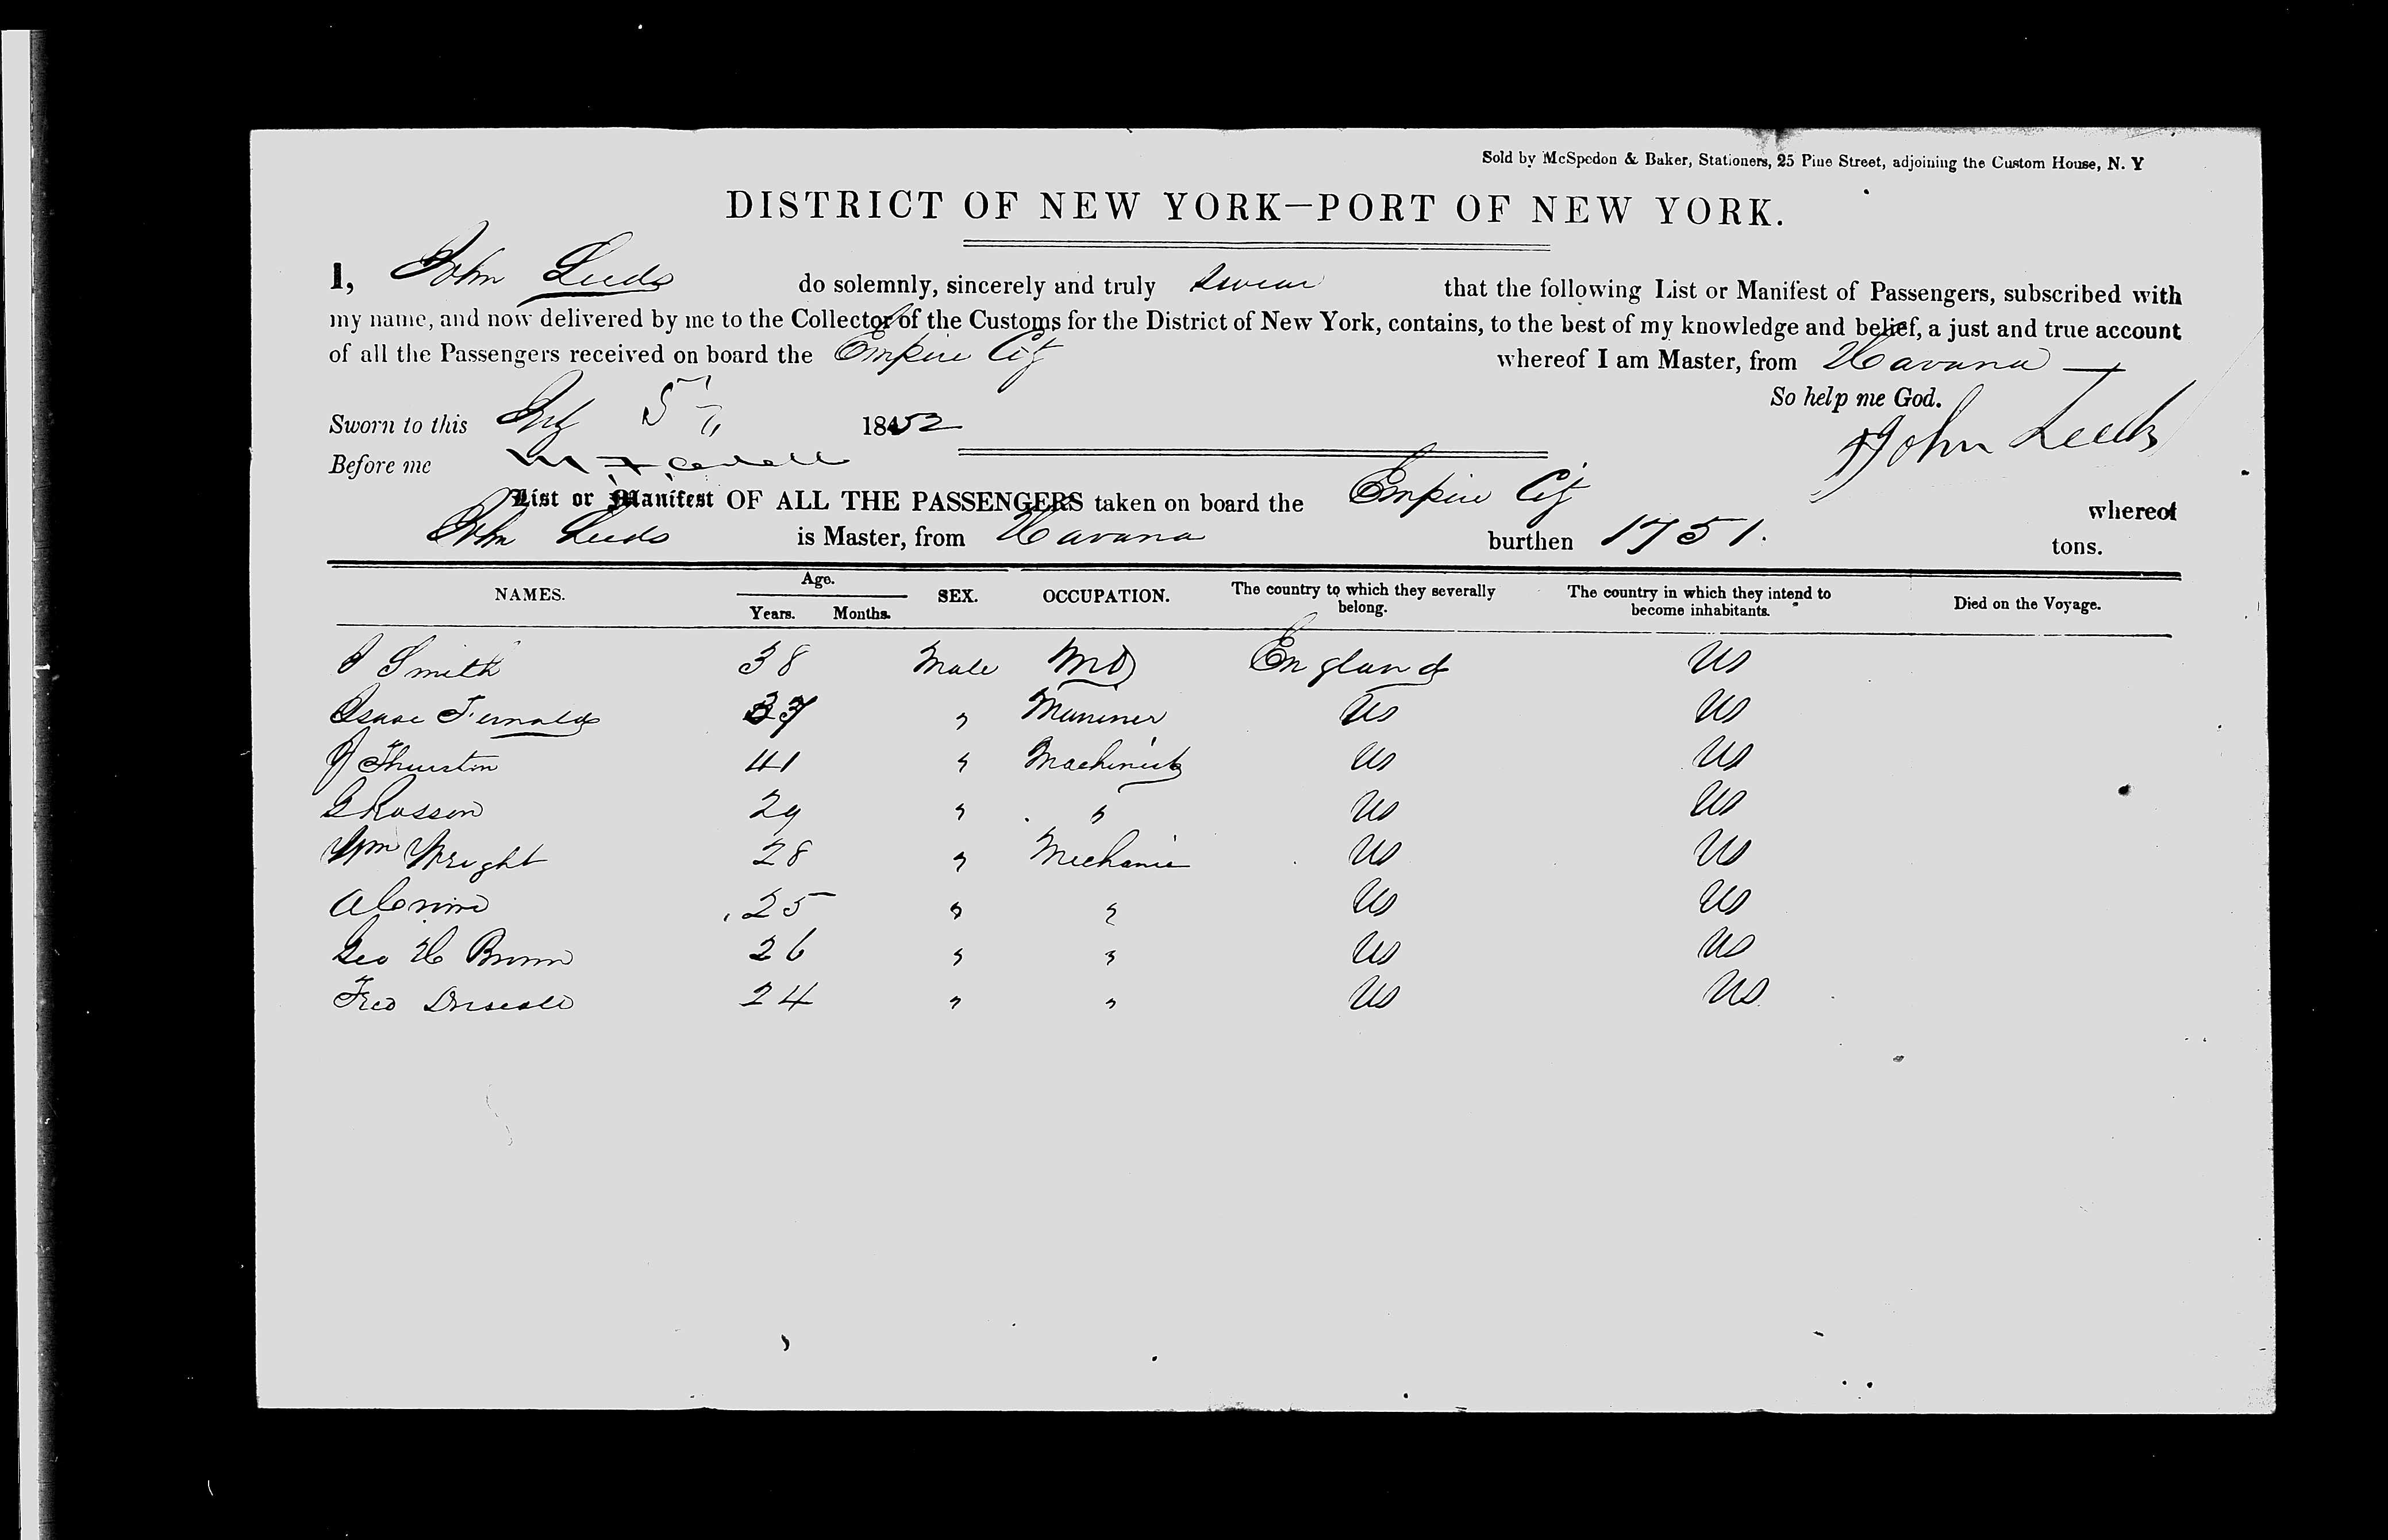 Sold by McSpedon & Baker, Stationers, 25 Pine Street, adjoining the Custom House, N. Y
DISTRICT OF NEW YORK—PORT OF NEW YORK.
I, John Leeds do solemnly, sincerely and truly swear that the following List or Manifest of Passengers, subscribed with
my name, and now delivered by me to the Collector of the Customs for the District of New York, contains, to the best of my knowledge and belief, a just and true account
of all the Passengers received on board the Empire City whereof I am Master, from Havana
So help me God.
Sworn to this 5 1852 John Leeds
Before me
List or Manifest OF ALL THE PASSENGERS taken on board the Empire City whereof
John Leeds is Master, from Havana burthen 1751. tons.
NAMES. Age. Years. Months. SEX. OCCUPATION. The country to which they severally belong. The country in which they intend to become inhabitants. Died on the Voyage.
J Smith 38 Male MD England US
Isaac Fernald 37 " Mariner US US
J Thurston 41 " Machinist US US
G Rosson 29 " " US US
Wm Wright 28 " Mechanic US US
25 " " US US
Geo H Brown 26 " " US US
Fred Driscoll 24 " " US US